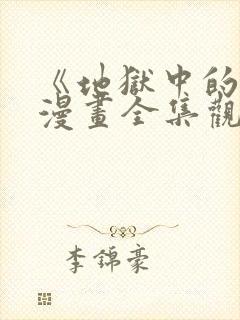 《地獄中的
漫畫全集觀
李錦豪